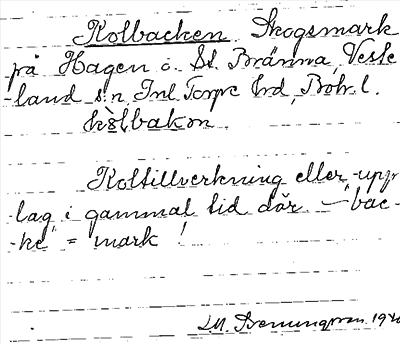 Kolbacken Skogsmark
på Hagen i St. Bränna, Veste
-land s:n Inl. Torpe hd, Boh. l.
kòlbakɑn.
Koltillverkning eller upp
-lag i gammal tid där – "bac-
-ke" = mark!
194